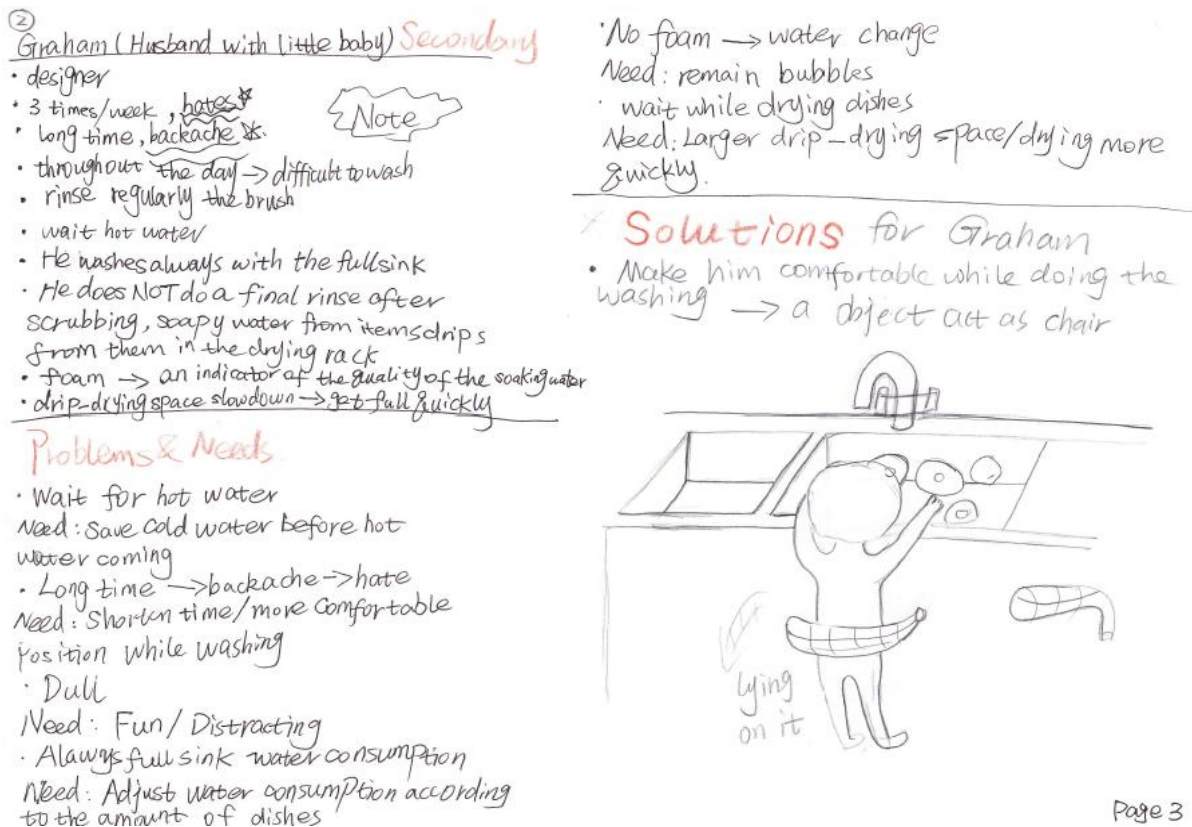 ②
Graham (Husband with little baby) Secondary
• designer
• 3 times/week, hates
Note
• long time, backache
• throughout the day → difficult to wash
• rinse regularly the brush
• wait hot water
• He washes always with the full sink
• He does NOT do a final rinse after
scrubbing, soapy water from items drips
from them in the drying rack
• foam → an indicator of the quality of the soaking water
• drip-drying space slowdown → get full quickly
Problems & Needs
• Wait for hot water
Need: Save cold water before hot
water coming
• Long time → backache → hate
Need: Shorten time/more comfortable
position while washing
• Dull
Need: Fun / Distracting
• Alawys full sink water consumption
Need: Adjust water consumption according
to the amount of dishes
• No foam → water change
Need: remain bubbles
• wait while drying dishes
Need: Larger drip-drying space/drying more
quickly.
Solutions for Graham
• Make him comfortable while doing the
washing → a object act as chair
lying
on it
Page 3